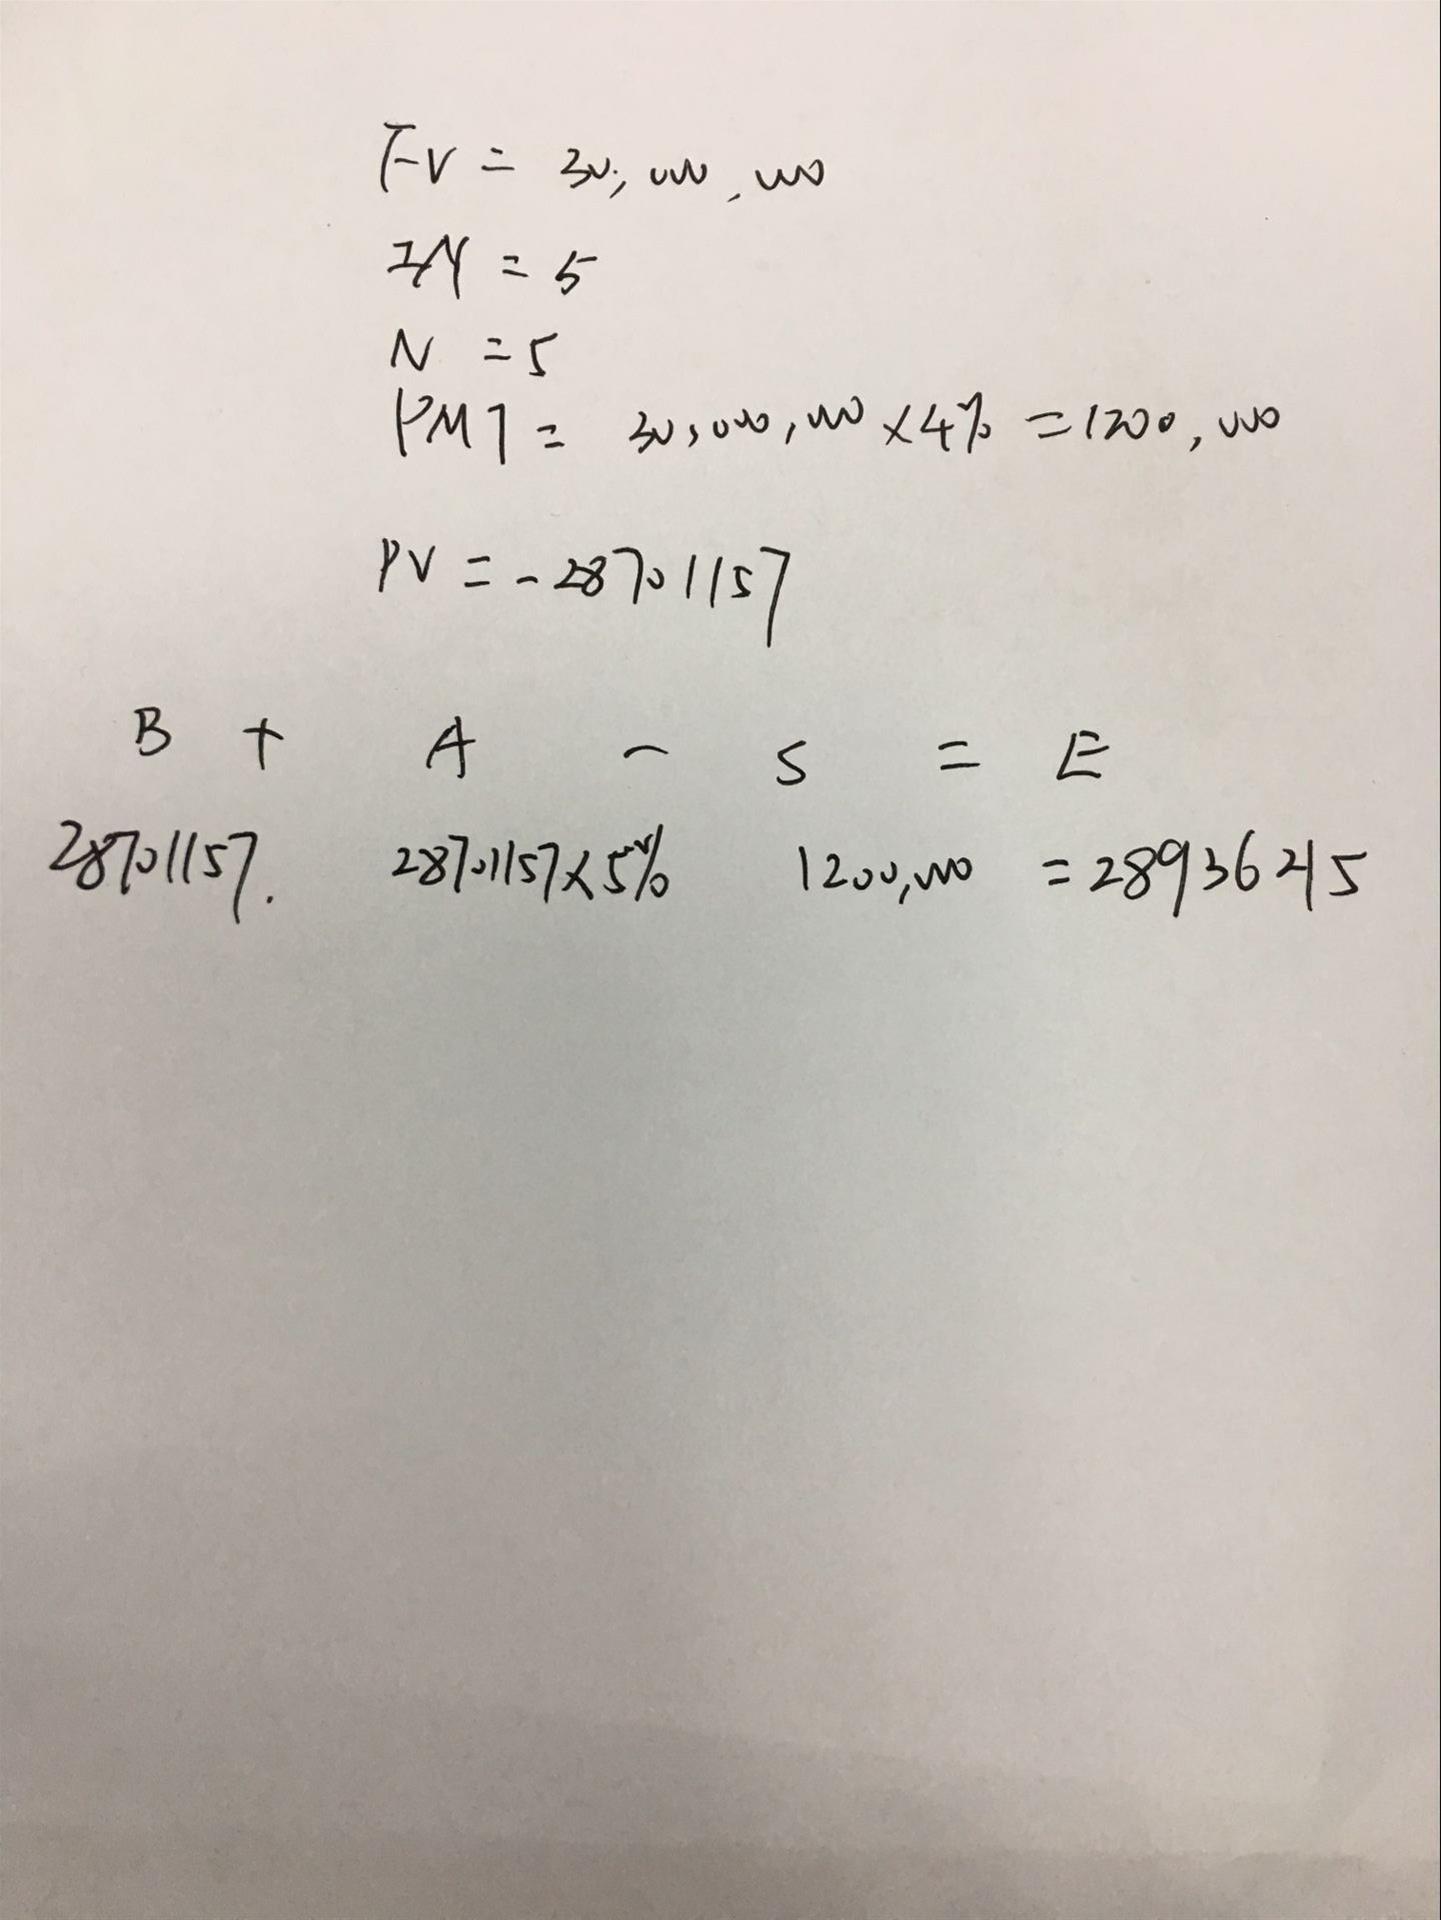 FV = 30,000,000
I/Y = 5
N = 5
PMT = 30,000,000 × 4% = 1200,000
PV = -28701157
B + A - S = E
28701157. 28701157×5% 1200,000 = 28936215